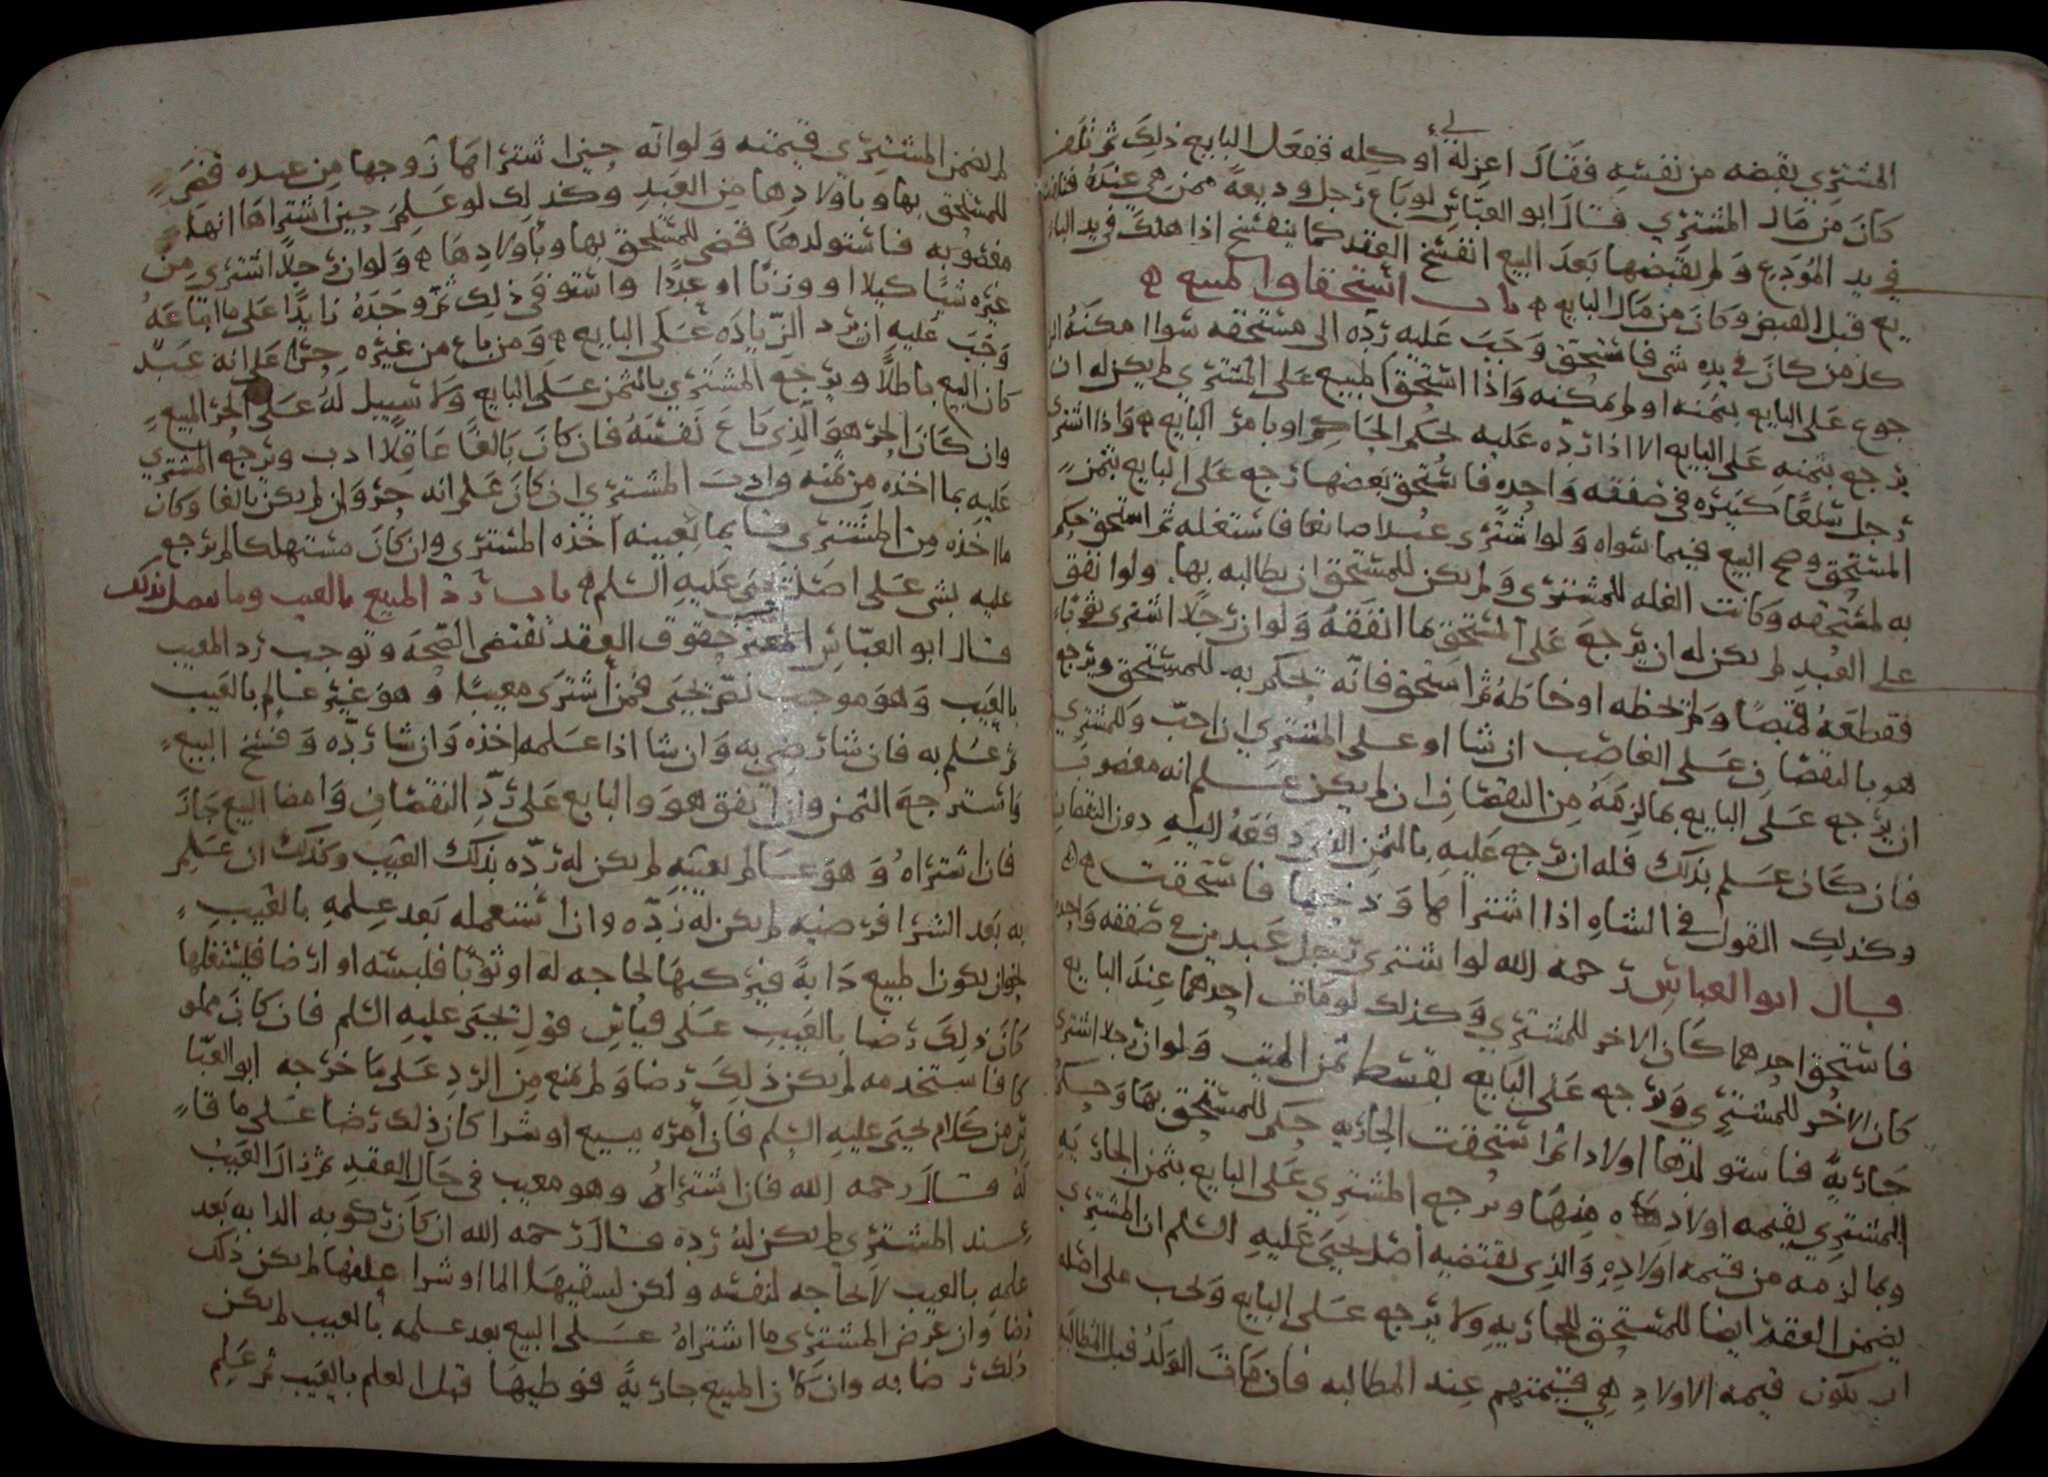 المشتري يقبضه من نفسه فقال اعزله لي أو كله ففعل البايع ذلك ثم تلف
كان من مال المشتري قال ابو العباس لو باع رجل وديعة ممن هي عنده فتلفت
في يد المودع ولم يقبضها بعد البيع انفسخ العقد كما ينفسخ اذا هلك في يد البا
يع قبل القبض وكان من مال البايع ه باب استحقاق المبيع ه
كل من كان في يده شي فاستحق وجب عليه رده الى مستحقه سوا امكنه الر
جوع على البايع بثمنه او لم يمكنه واذا استحق المبيع على المشتري لم يكن له ان
يرجع بثمنه على البايع الا اذا رده عليه بحكم الحاكم او بامر البايع ه واذا اشترى
رجل سلعا كثيره في صفقه واحده فاستحق بعضها رجع على البايع بثمن
المستحق وصح البيع فيما سواه ولو اشترى عبدا صانعا فاستغله ثم استحق حكم
به لمستحقه وكانت الغله للمشتري ولم يكن للمستحق ان يطالبه بها ولو انفق
على العبد لم يكن له ان يرجع على المستحق بما انفقه ولو ان رجلا اشترى ثوبا
فقطعه قميصا ولم يخطه او خاطه ثم استحق فانه يحكم به للمستحق ويرجع
هو بالنقصان على الغاصب ان شا او على المشتري ان احب وللمشتري
ان يرجع على البايع بما لزمه من النقصان ان لم يكن علم انه مغصوب
فان كان علم بذلك فله ان يرجع عليه بالثمن الذي دفعه اليه دون النقصان
وكذلك القول في الشاه اذا اشتراها وذبحها فاستحقت ه
قال ابو العباس رحمه الله لو اشترى رجل عبدين في صفقه واحده
فاستحق احدهما كان الاخر للمشتري وكذلك لو مات احدهما عند البايع
كان الاخر للمشتري ويرجع على البايع بقسط ثمن الميت ولو ان رجلا اشترى
جارية فاستولدها اولادا ثم استحقت الجاريه حكم للمستحق بها وحكم
للمشتري بقيمه اولاده منها ويرجع المشتري على البايع بثمن الجاريه
وبما لزمه من قيمه اولاده والذي يقتضيه أصل يحيى عليه السلم ان المشتري
يضمن العقر ايضا للمستحق للجاريه ولا يرجع على البايع ويجب على اصله
ان يكون قيمه الاولاد هي قيمتهم عند المطالبه فان مات الولد قبل المطالبه
لم يضمن المشتري قيمته ولو انه حين اشتراها زوجها من عبده قضي
للمستحق بها وباولادها من العبد وكذلك لو علم حين اشتراها انها
مغصوبه فاستولدها قضى للمستحق بها وبأولادها ه ولو ان رجلا اشترى من
غيره شيا كيلا او وزنا او عددا واستوفى ذلك ثم وجده زايدا على ما ابتاعه
وجب عليه ان يرد الزياده على البايع ه ومن باع من غيره حرا على انه عبد
كان البيع باطلا ويرجع المشتري بالثمن على البايع ولا سبيل له على الحر المبيع
وان كان الحر هو الذي باع نفسه فان كان بالغا عاقلا ادب ويرجع المشتري
عليه بما اخذه من ثمنه وادب المشتري ان كان علم انه حر وان لم يكن بالغا وكان
ما اخذه من المشتري قايما بعينه اخذه المشتري وان كان مستهلكا لم يرجع
عليه بشي على اصل يحيى عليه السلم ه باب رد المبيع بالعيب وما يتصل بذلك
قال ابو العباس المعنى حقوق العقد تقتضي الصحه وتوجب رد المعيب
بالعيب وهو موجب نص يحيى فمن اشترى معيبا وهو غير عالم بالعيب
ثم علم به فان شا رضي به وان شا اذا علمه اخذه وان شا رده وفسخ البيع
واسترجع الثمن وان اتفق هو والبايع على رد النقصان وامضا البيع جاز
فان اشتراه وهو عالم بعيبه لم يكن له رده بذلك العيب وكذلك ان علم
به بعد الشرا فرضيه لم يكن له رده وان استعمله بعد علمه بالعيب
نحو ان يكون المبيع دابة فيركبها لحاجه له او ثوبا فلبسه او ارضا فليستغلها
كان ذلك رضا بالعيب على قياس قول يحيى عليه السلم فان كان مملو
كا فاستخدمه لم يكن ذلك رضا ولم يمنع من الرد على ما خرجه ابو العبا
س من كلام يحيى عليه السلم فان أمره ببيع او شرا كان ذلك رضا على ما قا
له قال رحمه الله فان اشتراه وهو معيب في حال العقد ثم زال العيب
عند المشتري لم يكن له رده قال رحمه الله ان كان ركوبه الدابه بعد
علمه بالعيب لا لحاجه لنفسه ولكن ليسقيها الما او شرا علفها لم يكن ذلك
رضا وان عرض المشتري ما اشتراه على البيع بعد علمه بالعيب لم يكن
ذلك رضا به وان كان المبيع جارية فوطيها قبل العلم بالعيب ثم علم